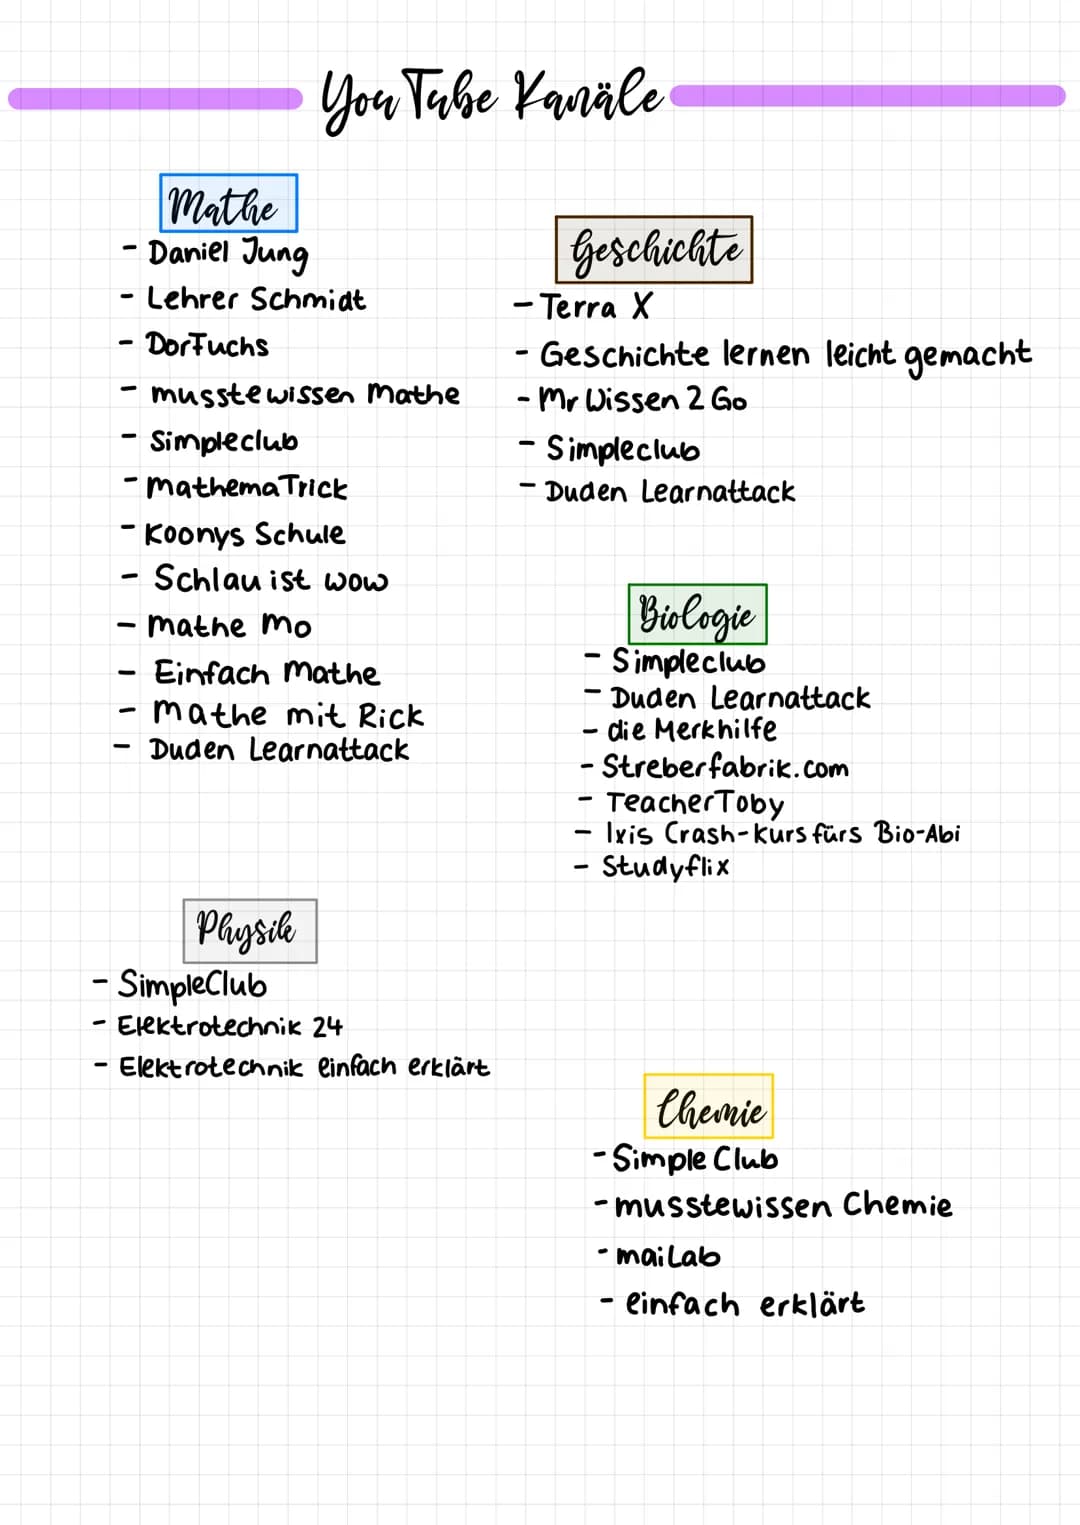 YouTube Kanäle
Mathe
- Daniel Jung
- Lehrer Schmidt
- DorFuchs
- musstewissen Mathe
- Simpleclub
- MathemaTrick
- Koonys Schule
- Schlau ist wow
- Mathe Mo
- Einfach Mathe
- Mathe mit Rick
- Duden Learnattack
Geschichte
- Terra X
- Geschichte lernen leicht gemacht
- Mr Wissen 2 Go
- Simpleclub
- Duden Learnattack
Biologie
- Simpleclub
- Duden Learnattack
- die Merkhilfe
- Streberfabrik.com
- TeacherToby
- Ixis Crash-kurs fürs Bio-Abi
- Studyflix
Physik
- SimpleClub
- Elektrotechnik 24
- Elektrotechnik einfach erklärt
Chemie
- Simple Club
- musstewissen Chemie
- maiLab
- einfach erklärt